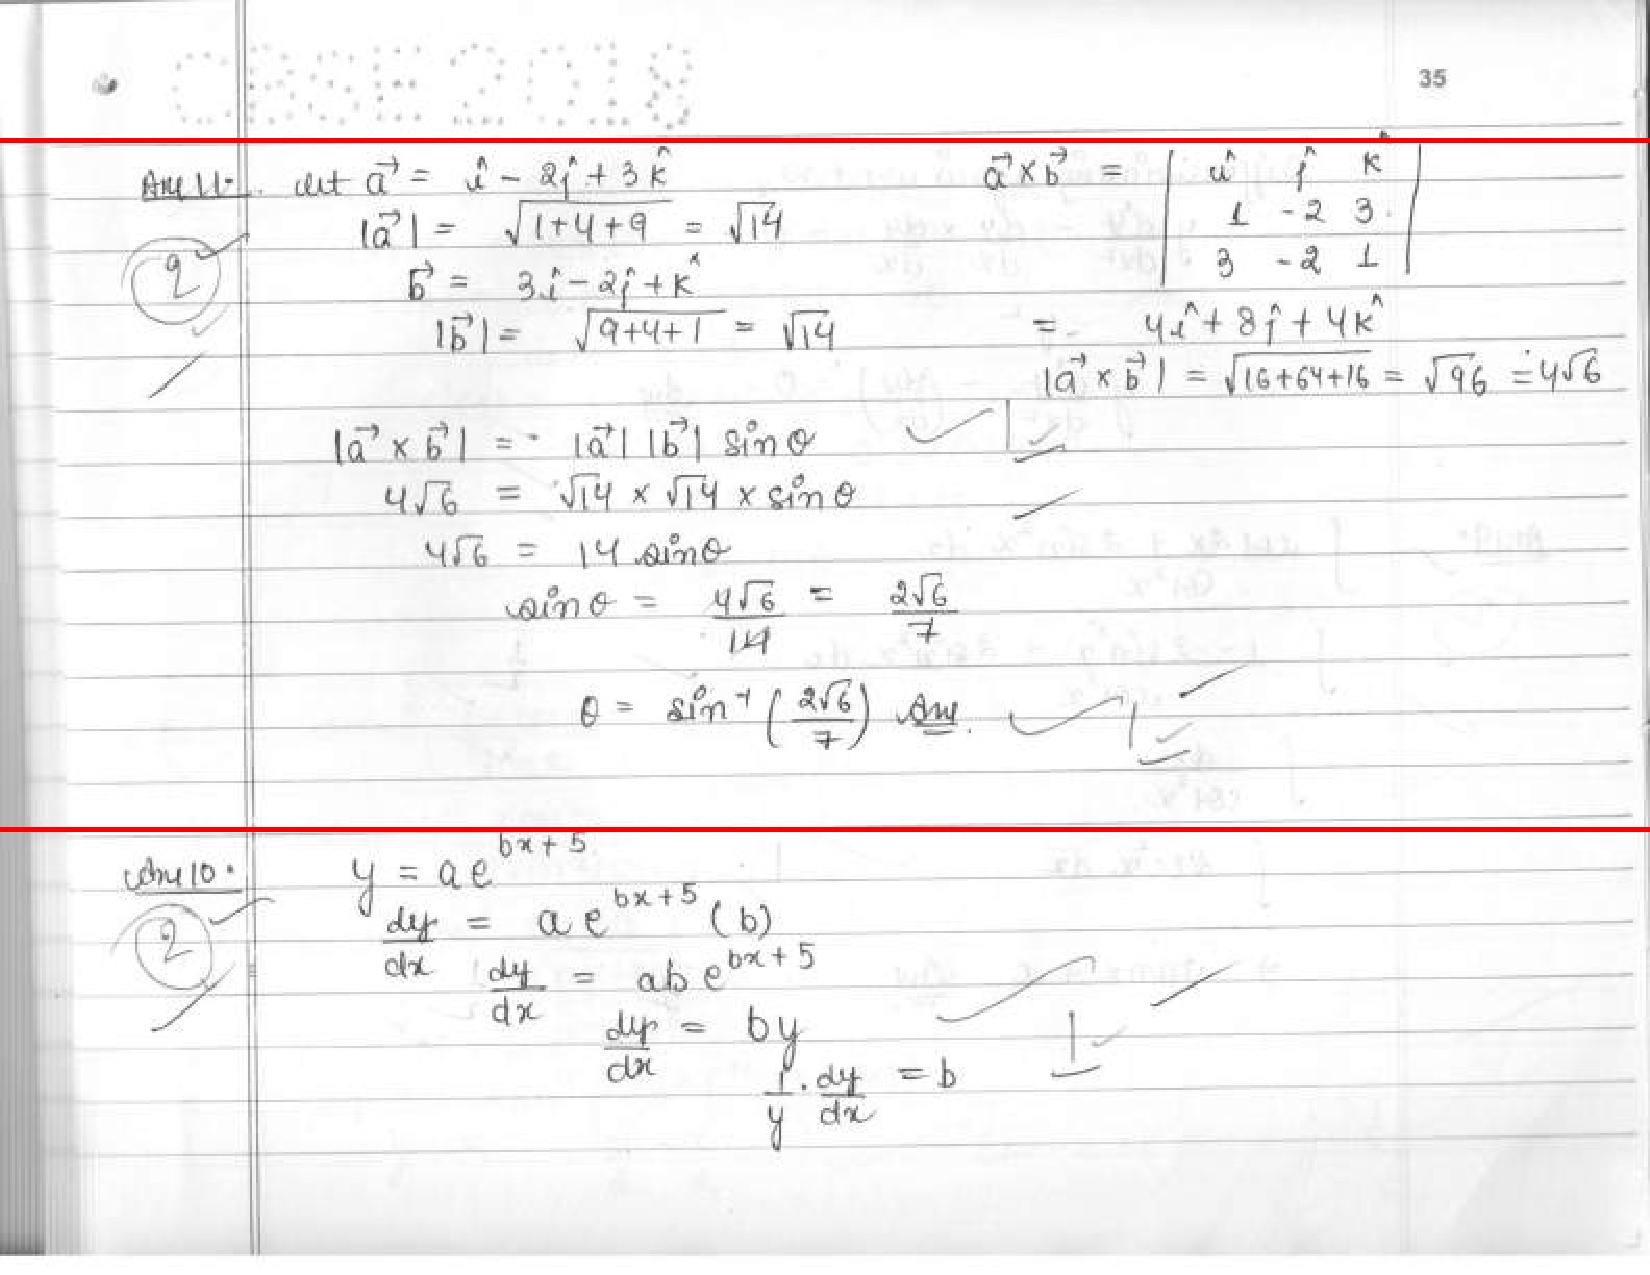 CBSE 2018
35
Ans 11. Let a⃗ = î - 2ĵ + 3k̂
|a⃗| = √(1+4+9) = √14
b⃗ = 3î - 2ĵ + k̂
|b⃗| = √(9+4+1) = √14
a⃗ × b⃗ = | î ĵ k̂ |
| 1 -2 3 |
| 3 -2 1 |
= 4î + 8ĵ + 4k̂
|a⃗ × b⃗| = √(16+64+16) = √96 = 4√6
2
|a⃗ × b⃗| = |a⃗| |b⃗| sin θ
1
4√6 = √14 × √14 × sin θ
4√6 = 14 sin θ
sin θ = 4√6/14 = 2√6/7
θ = sin⁻¹ (2√6/7) Ans.
1
Ans 10. y = a e^(bx+5)
2
dy/dx = a e^(bx+5) (b)
dy/dx = ab e^(bx+5)
dy/dx = by
1
1/y . dy/dx = b